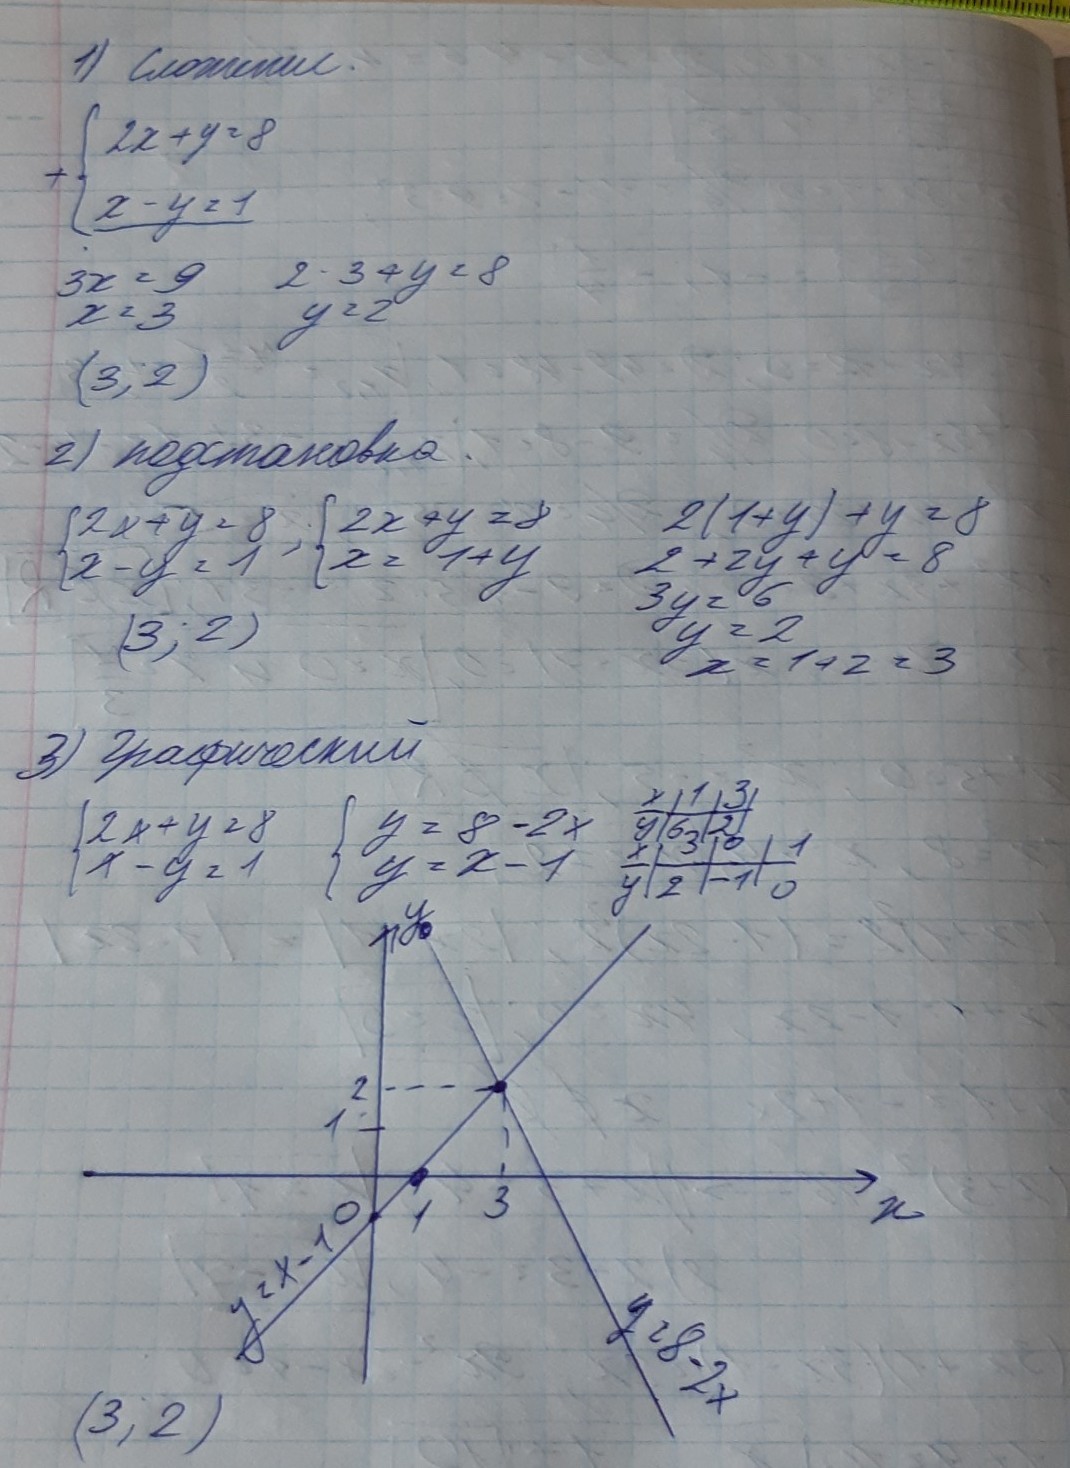 1) Сложение.
2x+y=8
+
x-y=1
3x=9 2·3+y=8
x=3 y=2
(3; 2)
2) подстановка.
2x+y=8 ; 2x+y=8 2(1+y)+y=8
x-y=1 x=1+y 2+2y+y=8
3y=6
(3; 2) y=2
x=1+2=3
3) Графический
2x+y=8 y=8-2x x|1|3|
x-y=1 y=x-1 y|6|2|
x|3|0|1
y|2|-1|0
y
2
1
0 1 3 x
y=x-1
y=8-2x
(3; 2)